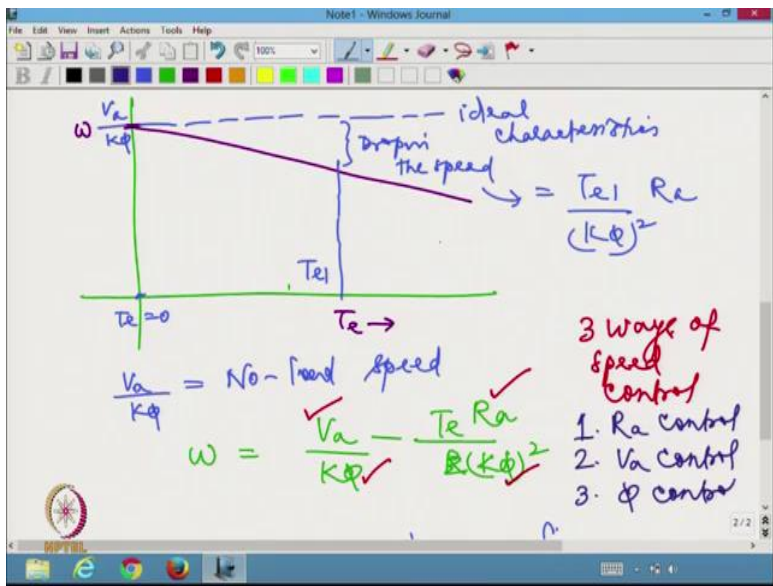 Note1 - Windows Journal
File Edit View Insert Actions Tools Help
100%
B I
Va
ω Kφ
ideal
characteristics
Drop in
the speed
= Te1 Ra
(Kφ)²
Te1
Te=0
Te →
3 ways of
speed
control
Va = No-load speed
Kφ
ω = Va - Te Ra
Kφ (Kφ)²
1. Ra control
2. Va control
3. φ control
2/2
NPTEL